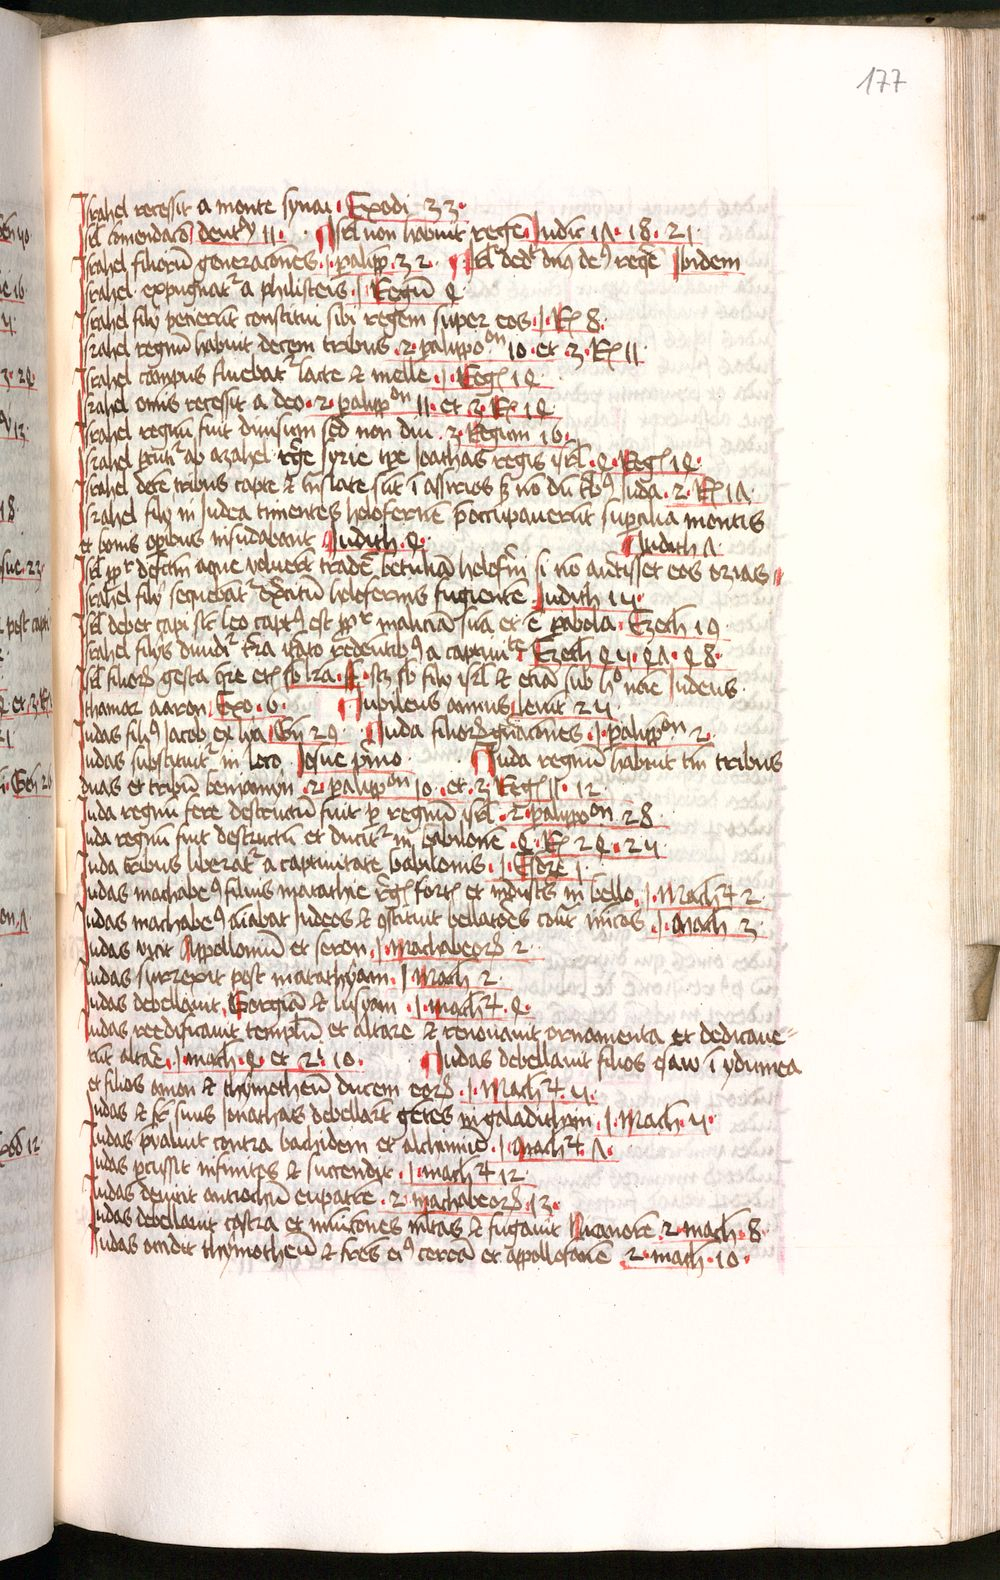 177
Israhel recessit a monte synai · Exodi 33 ·
Isrl comendacio deutro 11 · Isrl non habuit regem Iudic 17 · 18 · 21 ·
Israhel filiorum generaciones · 1 · palipp · 32 · Isrl dedit dominus deus regem Ibidem
Israhel expugnatur a philisteis · 1 Regum 4
Israhel filij petierunt constitui sibi regem super eos · 1 · Rg 8 ·
Israhel regnum habuit decem tribus · 2 · palippoon 10 · et · 3 · Rg 11
Israhel campus fluebat lacte et melle · 1 · Reg 14 ·
Israhel omnis recessit a deo · 2 · palippon 11 · et · 3 · Rg · 14 ·
Israhel regnum fuit diuisum sed non diu · 3 · Regum 16 ·
Israhel ab azahel rege syrie tempore Ioathas regis isrl · 4 · Reg 14 ·
Israhel decem tribus capte et translate sunt in assirios Iuda · 2 · Rg 17
Israhel filij in Iudea timentes holoferne preoccupauerunt montis
et bonis operibus insudabant Iudith · 4 · Iudith 7
Isrl propter defectum aque voluerunt tradere betuliam holoferni si non audisset eos ozias
Israhel filij sequebantur exercitum holofernis fugientem Iudith 15 ·
Isrl debet capi sicut leo captus est propter maliciam suam et est parabola · Ezech 19 ·
Israhel filijs diuiditur terra redeuntibus a captiuitate Ezech 45 · 47 · 48 ·
Isrl filiorum gesta sub filij isrl et etiam sub hoc nomine Iudeus ·
Ithamar aaron Exo · 6 · Iubileus annus leuit 25
Iudas filius Iacob ex lya Gen 29 Iuda filiorum generaciones · 1 · palippon 2 ·
Iudas substituitur in loco Iosue primo Iuda regnum habuit tantum tribus
duas et tribum beniamin · 2 · palippon 10 · et · 3 Reg 11 · 12
Iuda regnum fere destructum fuit per regnum isrl · 2 · palippoon 28
Iuda regnum fuit destructum et ducitur in babilonem · 4 · Rg 24 · 25 ·
Iuda tribus liberatur a captiuitate babilonis · 1 · Esdre 1 ·
Iudas machabeus filius matathie fortis et in bello · 1 · Mach 2 ·
Iudas machabeus Iudeos et constituit bellatores contra inimicos · 1 · Mach 3
Iudas vicit Appollonium et seron · 1 · Machabeorum 2 ·
Iudas surrexit post matathyam · 1 Mach 2 ·
Iudas debellauit Gorgiam et lisyam · 1 · mach 4 ·
Iudas reedificauit templum et altare et renouauit ornamenta et dedicaue-
runt altare · 1 · mach · 4 · et 2 · 10 · Iudas debellauit filios esau in ydumea
et filios amon et thymotheum ducem eorum · 1 · Mach 5 ·
Iudas et frater suus Ionathas debellant gentes in galadithim · 1 · Mach 5 ·
Iudas preualuit contra bachidem et alchimum · 1 · Mach 7 ·
Iudas percussit infinitos et succendit · 1 · mach 12 ·
Iudas deuicit antiochum eupatrem · 2 · machabeorum 13 ·
Iudas debellauit castra et municiones multas et fugauit Nicanorem 2 · mach · 8 ·
Iudas occidit thymotheum et fratrem eius cerea et appollofanem 2 · mach · 10 ·